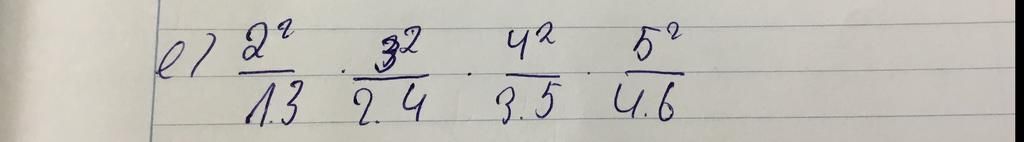 e) 2²/1.3 · 3²/2.4 · 4²/3.5 · 5²/4.6